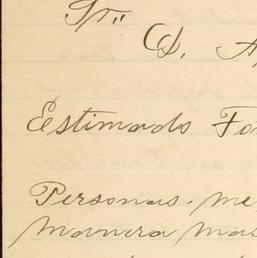 Sr.
D. A
Eestimado Fa
Personas. me
Manera mas